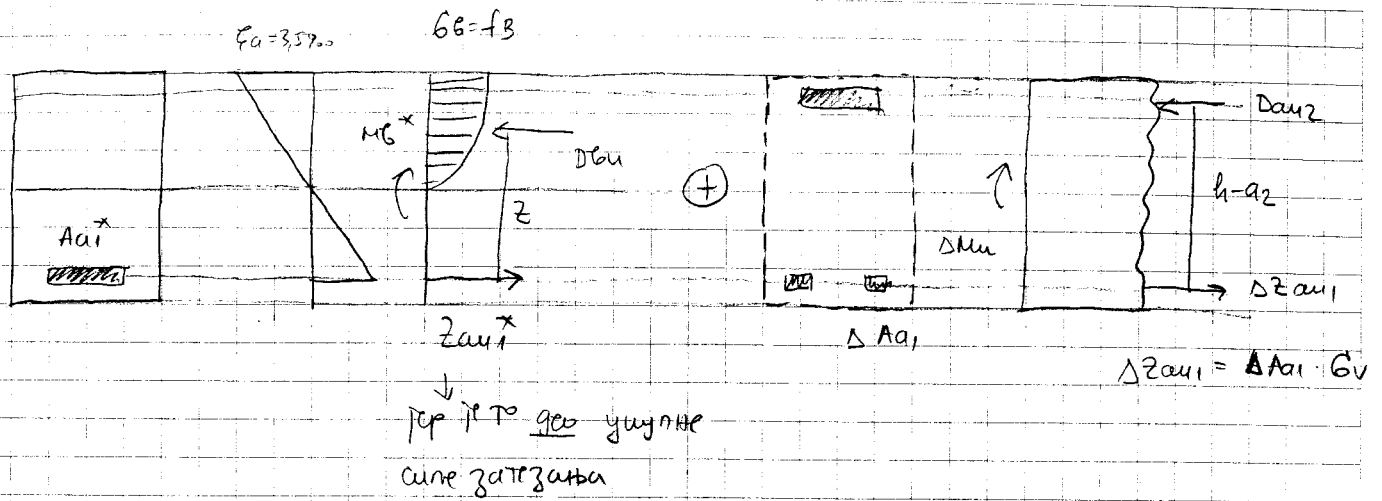 εa=3,5‰ σб=fB
Mб*
Dби
Z
Aa1*
Zaи1*
↓
јер је то део укупне
силе затезања
+
ΔAa1
ΔMи
Daи2
h-a2
ΔZaи1
ΔZaи1 = ΔAa1 · σv